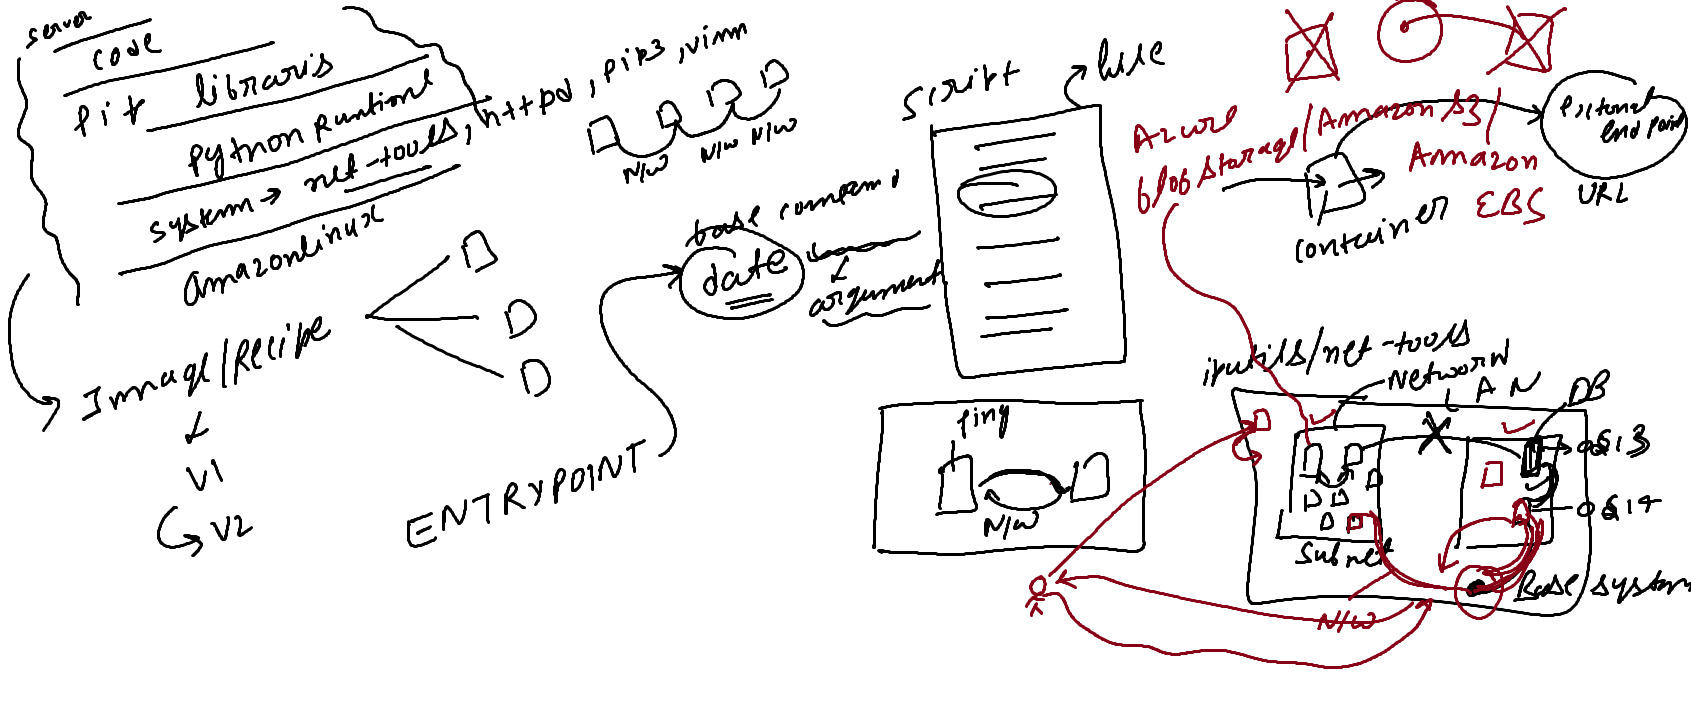 server
code
pip libraris
Python Runtime
system → net-tools, httpd, pip3, vim
amazonlinux
Image/Recipe
V1
V2
N/W
N/W N/W
base command
date
argument
ENTRYPOINT
script
Azure
blobstorage/Amazon S3/
Amazon
EBS
container
end point
URL
iputils/net-tools
Network
LAN
DB
ping
N/W
subnet
Base system
N/W